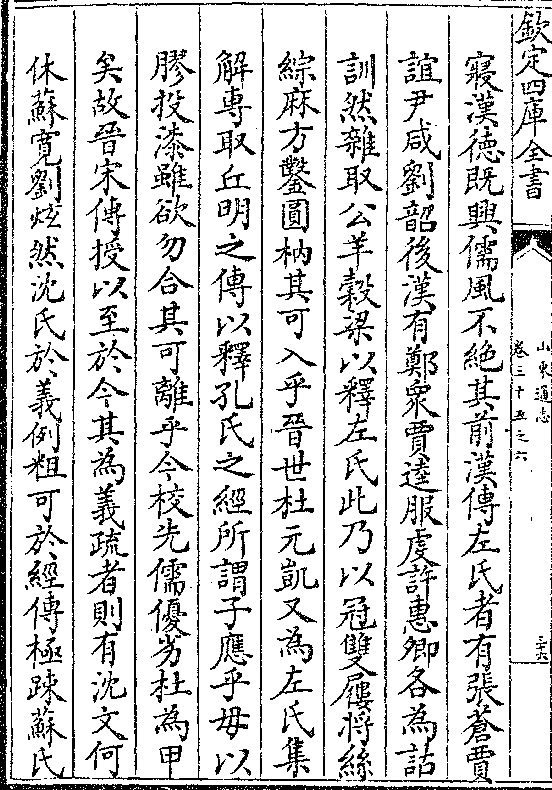 欽定四庫全書
山東通志
卷三十五之六
三六
寢漢德既興儒風不絶其前漢傳左氏者有張蒼賈
誼尹咸劉韶後漢有鄭衆賈逵服虔許惠卿各為詁
訓然雜取公羊穀梁以釋左氏此乃以冠雙屨將絲
綜麻方鑿圓枘其可入乎晉世杜元凱又為左氏集
解專取丘明之傳以釋孔氏之經所謂子應乎母以
膠投漆雖欲勿合其可離乎今校先儒優劣杜為甲
矣故晉宋傳授以至於今其為義疏者則有沈文何
休蘇寛劉炫然沈氏於義例粗可於經傳極踈蘇氏